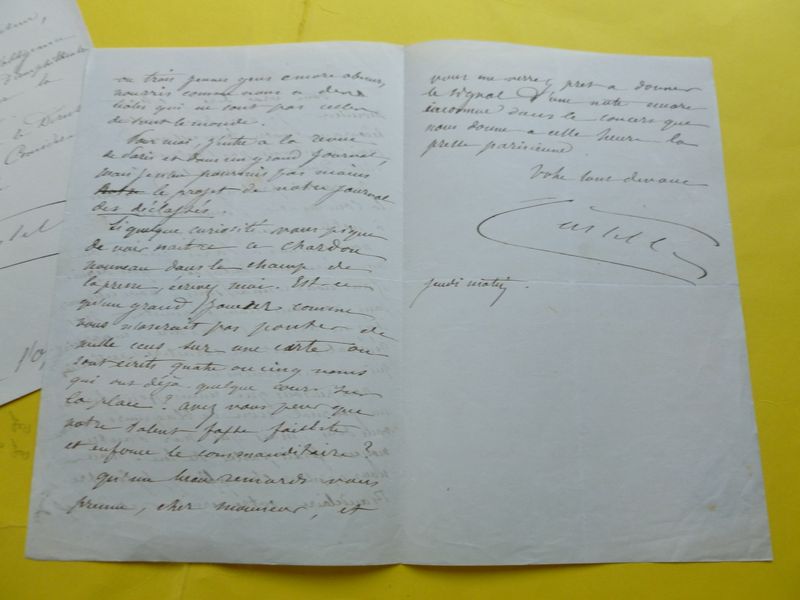 ou trois pauvres gens encore obscurs,
nourris comme nous a des
idées qui ne sont pas celles
de tout le monde.
Pour moi, j'entre a la revue
de Paris et dans un grand journal,
mais je n'en poursuis pas moins
le projet de notre journal
des déclassés.
Si quelque curiosité vous pique
de voir naître ce chardon
nouveau dans le champ de
la presse, écrivez moi. Est-ce
qu'un grand joueur comme
vous n'oserait pas ponter de
mille écus sur une carte où
sont écrits quatre ou cinq noms
qui ont déjà quelque cours sur
la place ? avez vous peur que
notre talent fasse faillite
et enfonce le commanditaire ?
qu'un beau remords vous
prenne, cher monsieur, et
vous me verrez prêt a donner
le signal d'une note encore
inconnue dans le concert que
nous donne a cette heure la
presse parisienne
Votre tout dévoué
Castille
jeudi matin.